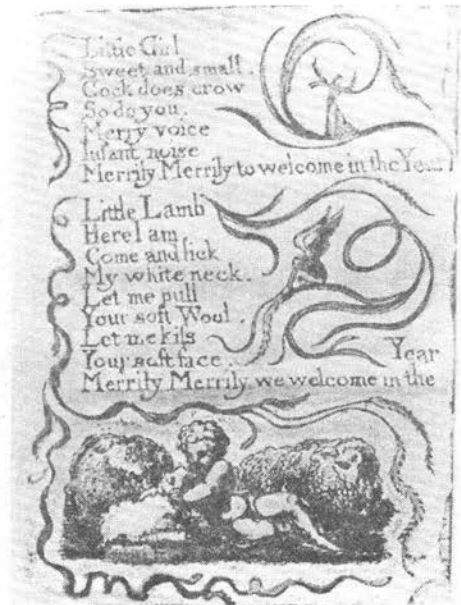 Little Girl
Sweet and small.
Cock does crow
So do you.
Merry voice
Infant noise
Merrily Merrily to welcome in the Year
Little Lamb
Here I am,
Come and lick
My white neck.
Let me pull
Your soft Wool.
Let me kiss
Your soft face.
Merrily Merrily we welcome in the Year